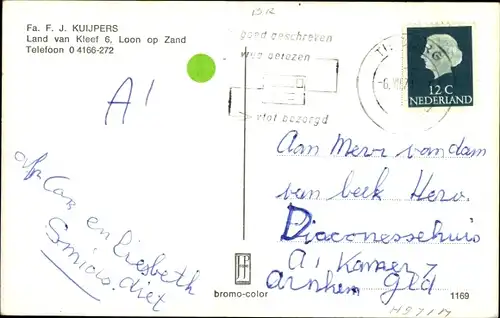 Fa. F. J. KUIJPERS
Land van Kleef 6, Loon op Zand
Telefoon 0 4166-272
goed geschreven
vlot bezorgd
12 C
NEDERLAND
A'
en Liesbeth
Aan Mevr van dam
van beek
Diaconessehuis
A, Kamer 7
Arnhem Gld
bromo-color
1169